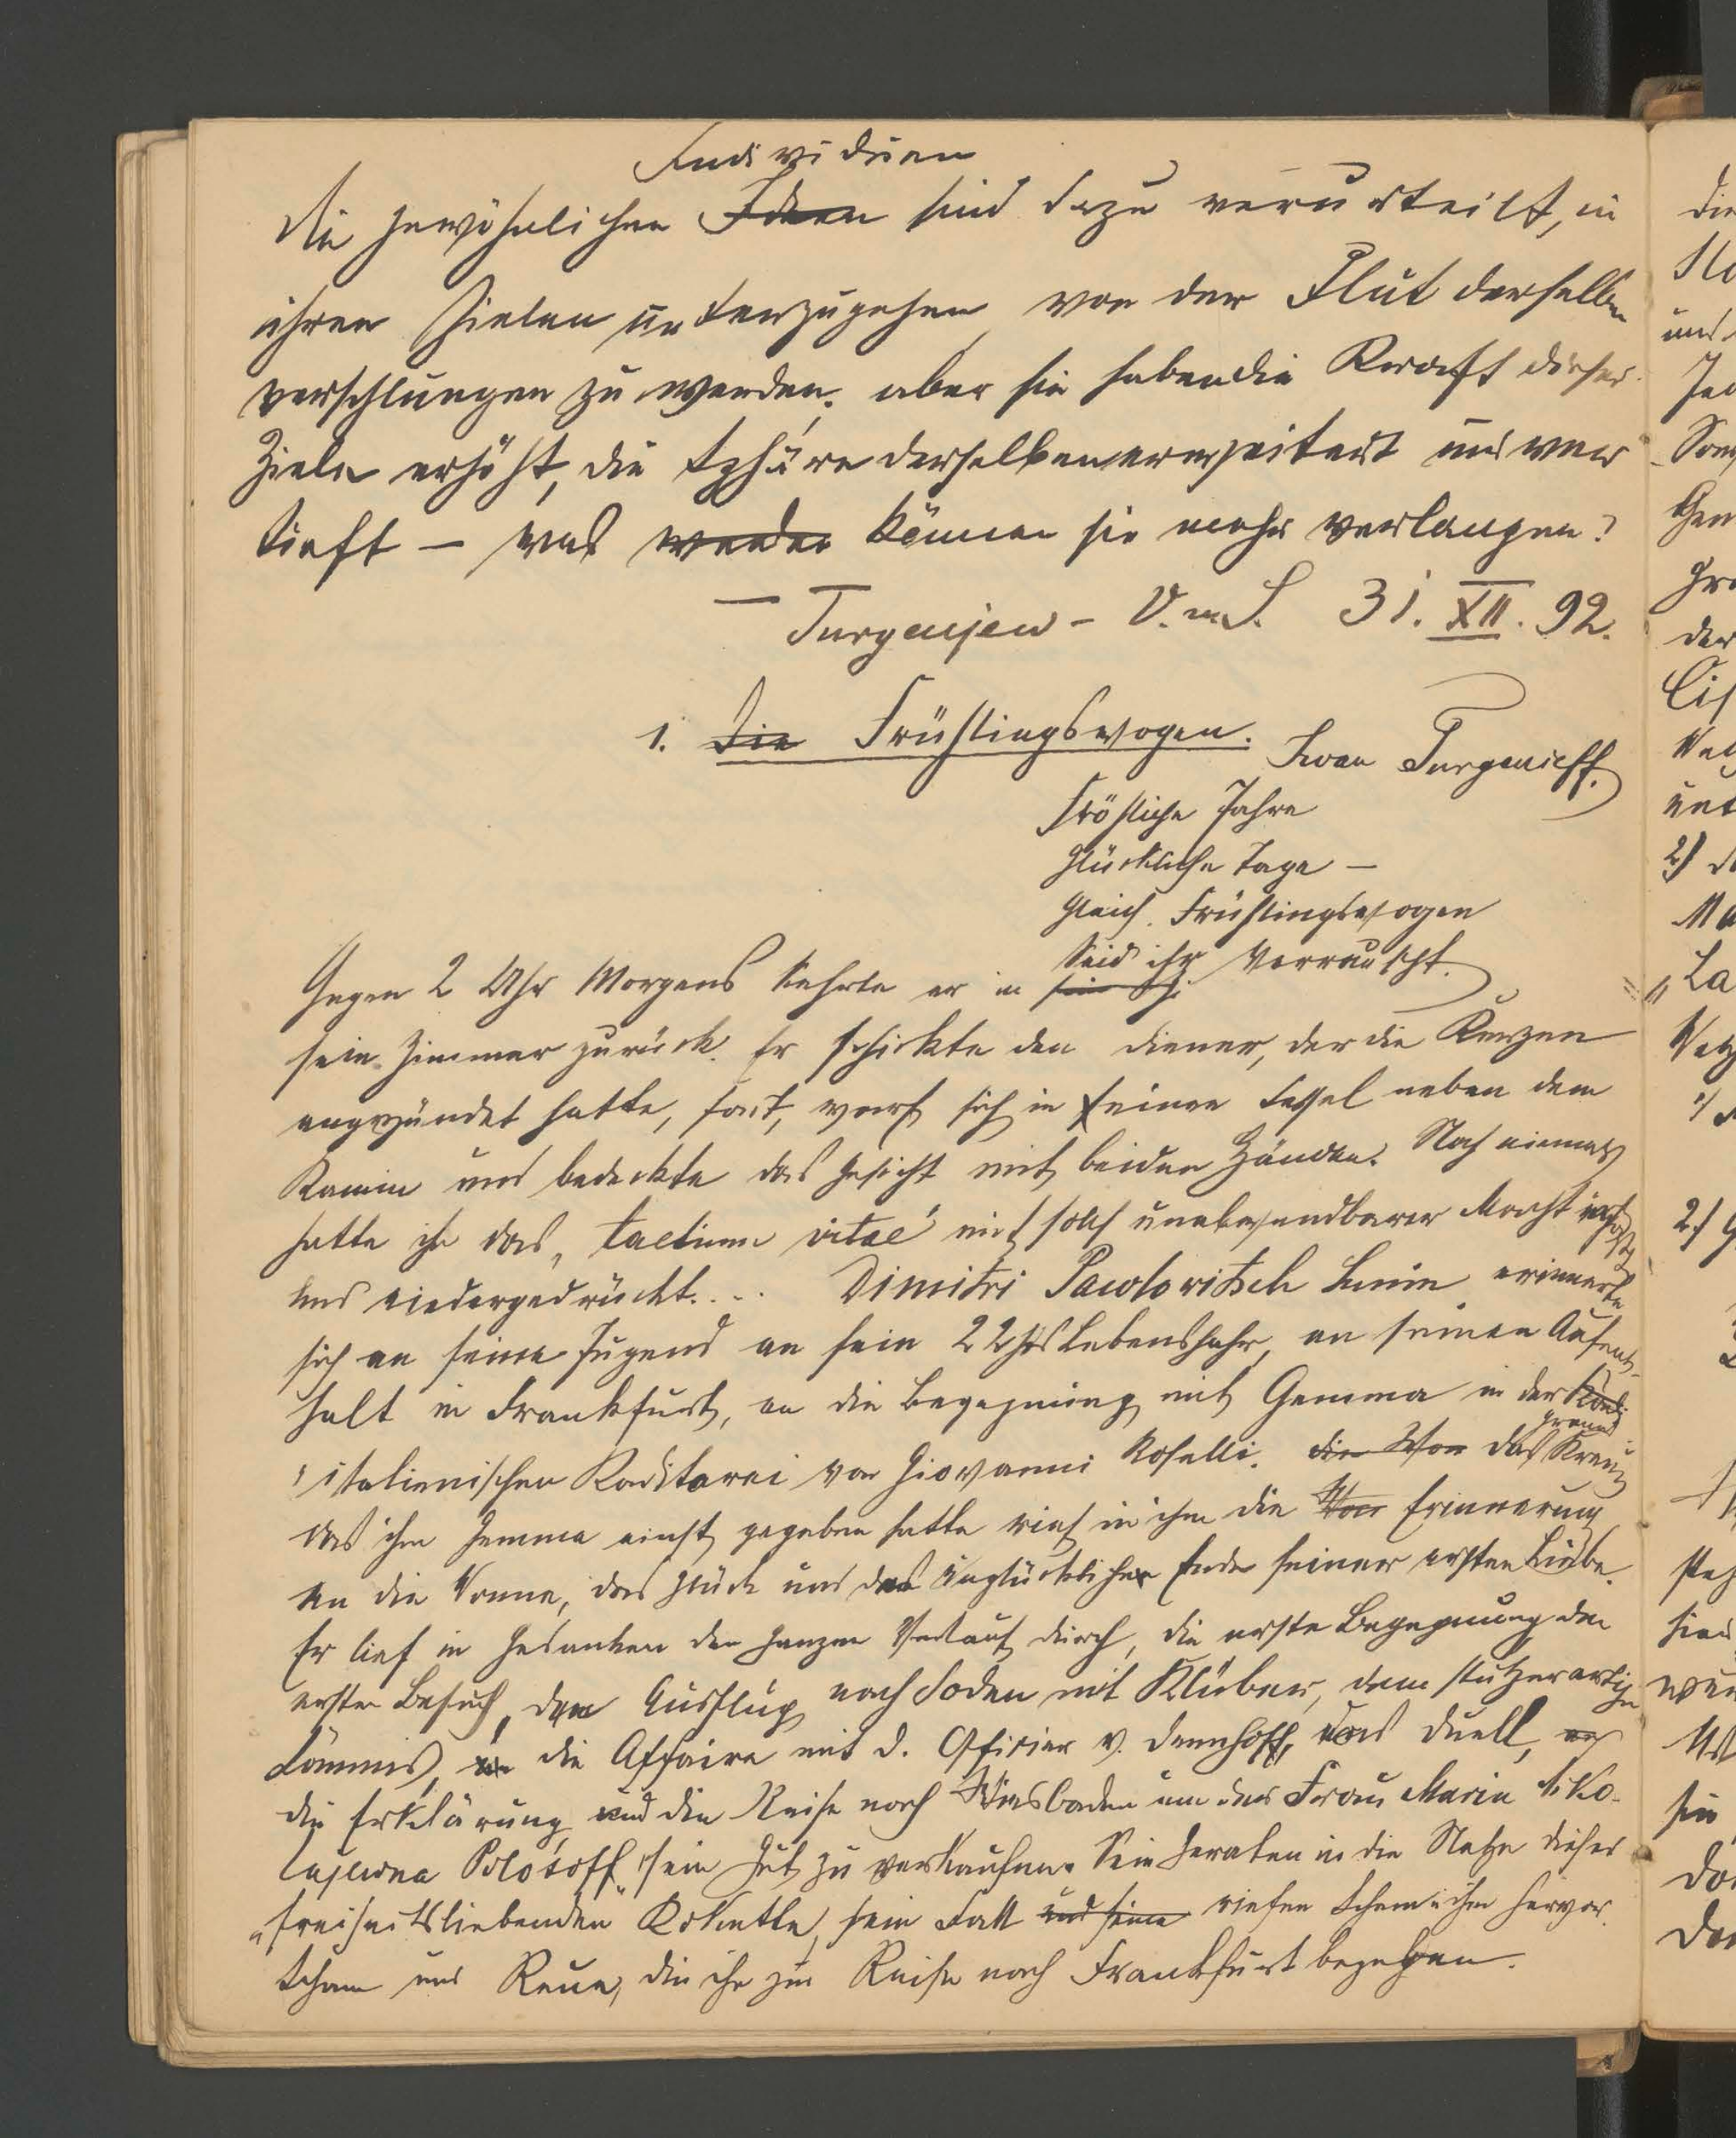 Individuen
Die gewöhnlichen Ideen sind dazu verurteilt, in
ihren Zielen unterzugehen, von der Flut derselben
verschlungen zu werden. aber sie haben die Kraft dieser
Ziele erhöht, die Sphäre derselben erweitert und ver
tieft — was werden können sie mehr verlangen?
— Turgenjew – V. m. S. 31. XII. 92.
1. Die Frühlingswogen.
Iwan Turgenieff.
Fröhliche Jahre
glückliche Tage —
gleich Frühlingswogen
Seid ihr verrauscht.
Gegen 2 Uhr Morgens kehrte er in
sein Zimmer zurück. Er schickte den Diener, der die Kerzen
angezündet hatte, fort, warf sich in seinen Sessel neben dem
Kamin und bedeckte das Gesicht mit beiden Händen. Noch niemals
hatte ihn das „taedium vitae" mit solch unabwendbarer Macht erfaßt
und niedergedrückt.... Dimitri Pawlowitsch Sanin erinnerte
sich an seine Jugend an sein 22stes Lebensjahr, an seinen Aufent-
halt in Frankfurt, an die Begegnung mit Gemma in der Kondi
italienischen Konditorei von Giovanni Roselli. die Won das Kreuz
das ihm Gemma einst gegeben hatte rief in ihm die Won Erinnerung
an die Wonne, das Glück und das unglückliche Ende seiner ersten Liebe.
Er lief in Gedanken den ganzen Verlauf durch, die erste Begegnung den
ersten Besuch, den Ausflug nach Soden mit Klüber, dem stutzerartigen
Commis, die Affaire mit d. Offizier v. Dennhoff, das Duell,
die Erklärung und die Reise nach Wiesbaden um der Frau Maria Niko-
lajewna Polosoff sein Gut zu verkaufen. Sein Geraten in die Netze dieser
„freiheitsliebenden" Kokette, sein Fall und seine riefen Scham in ihm hervor.
Scham und Reue, die ihn zur Reise nach Frankfurt bewegen.